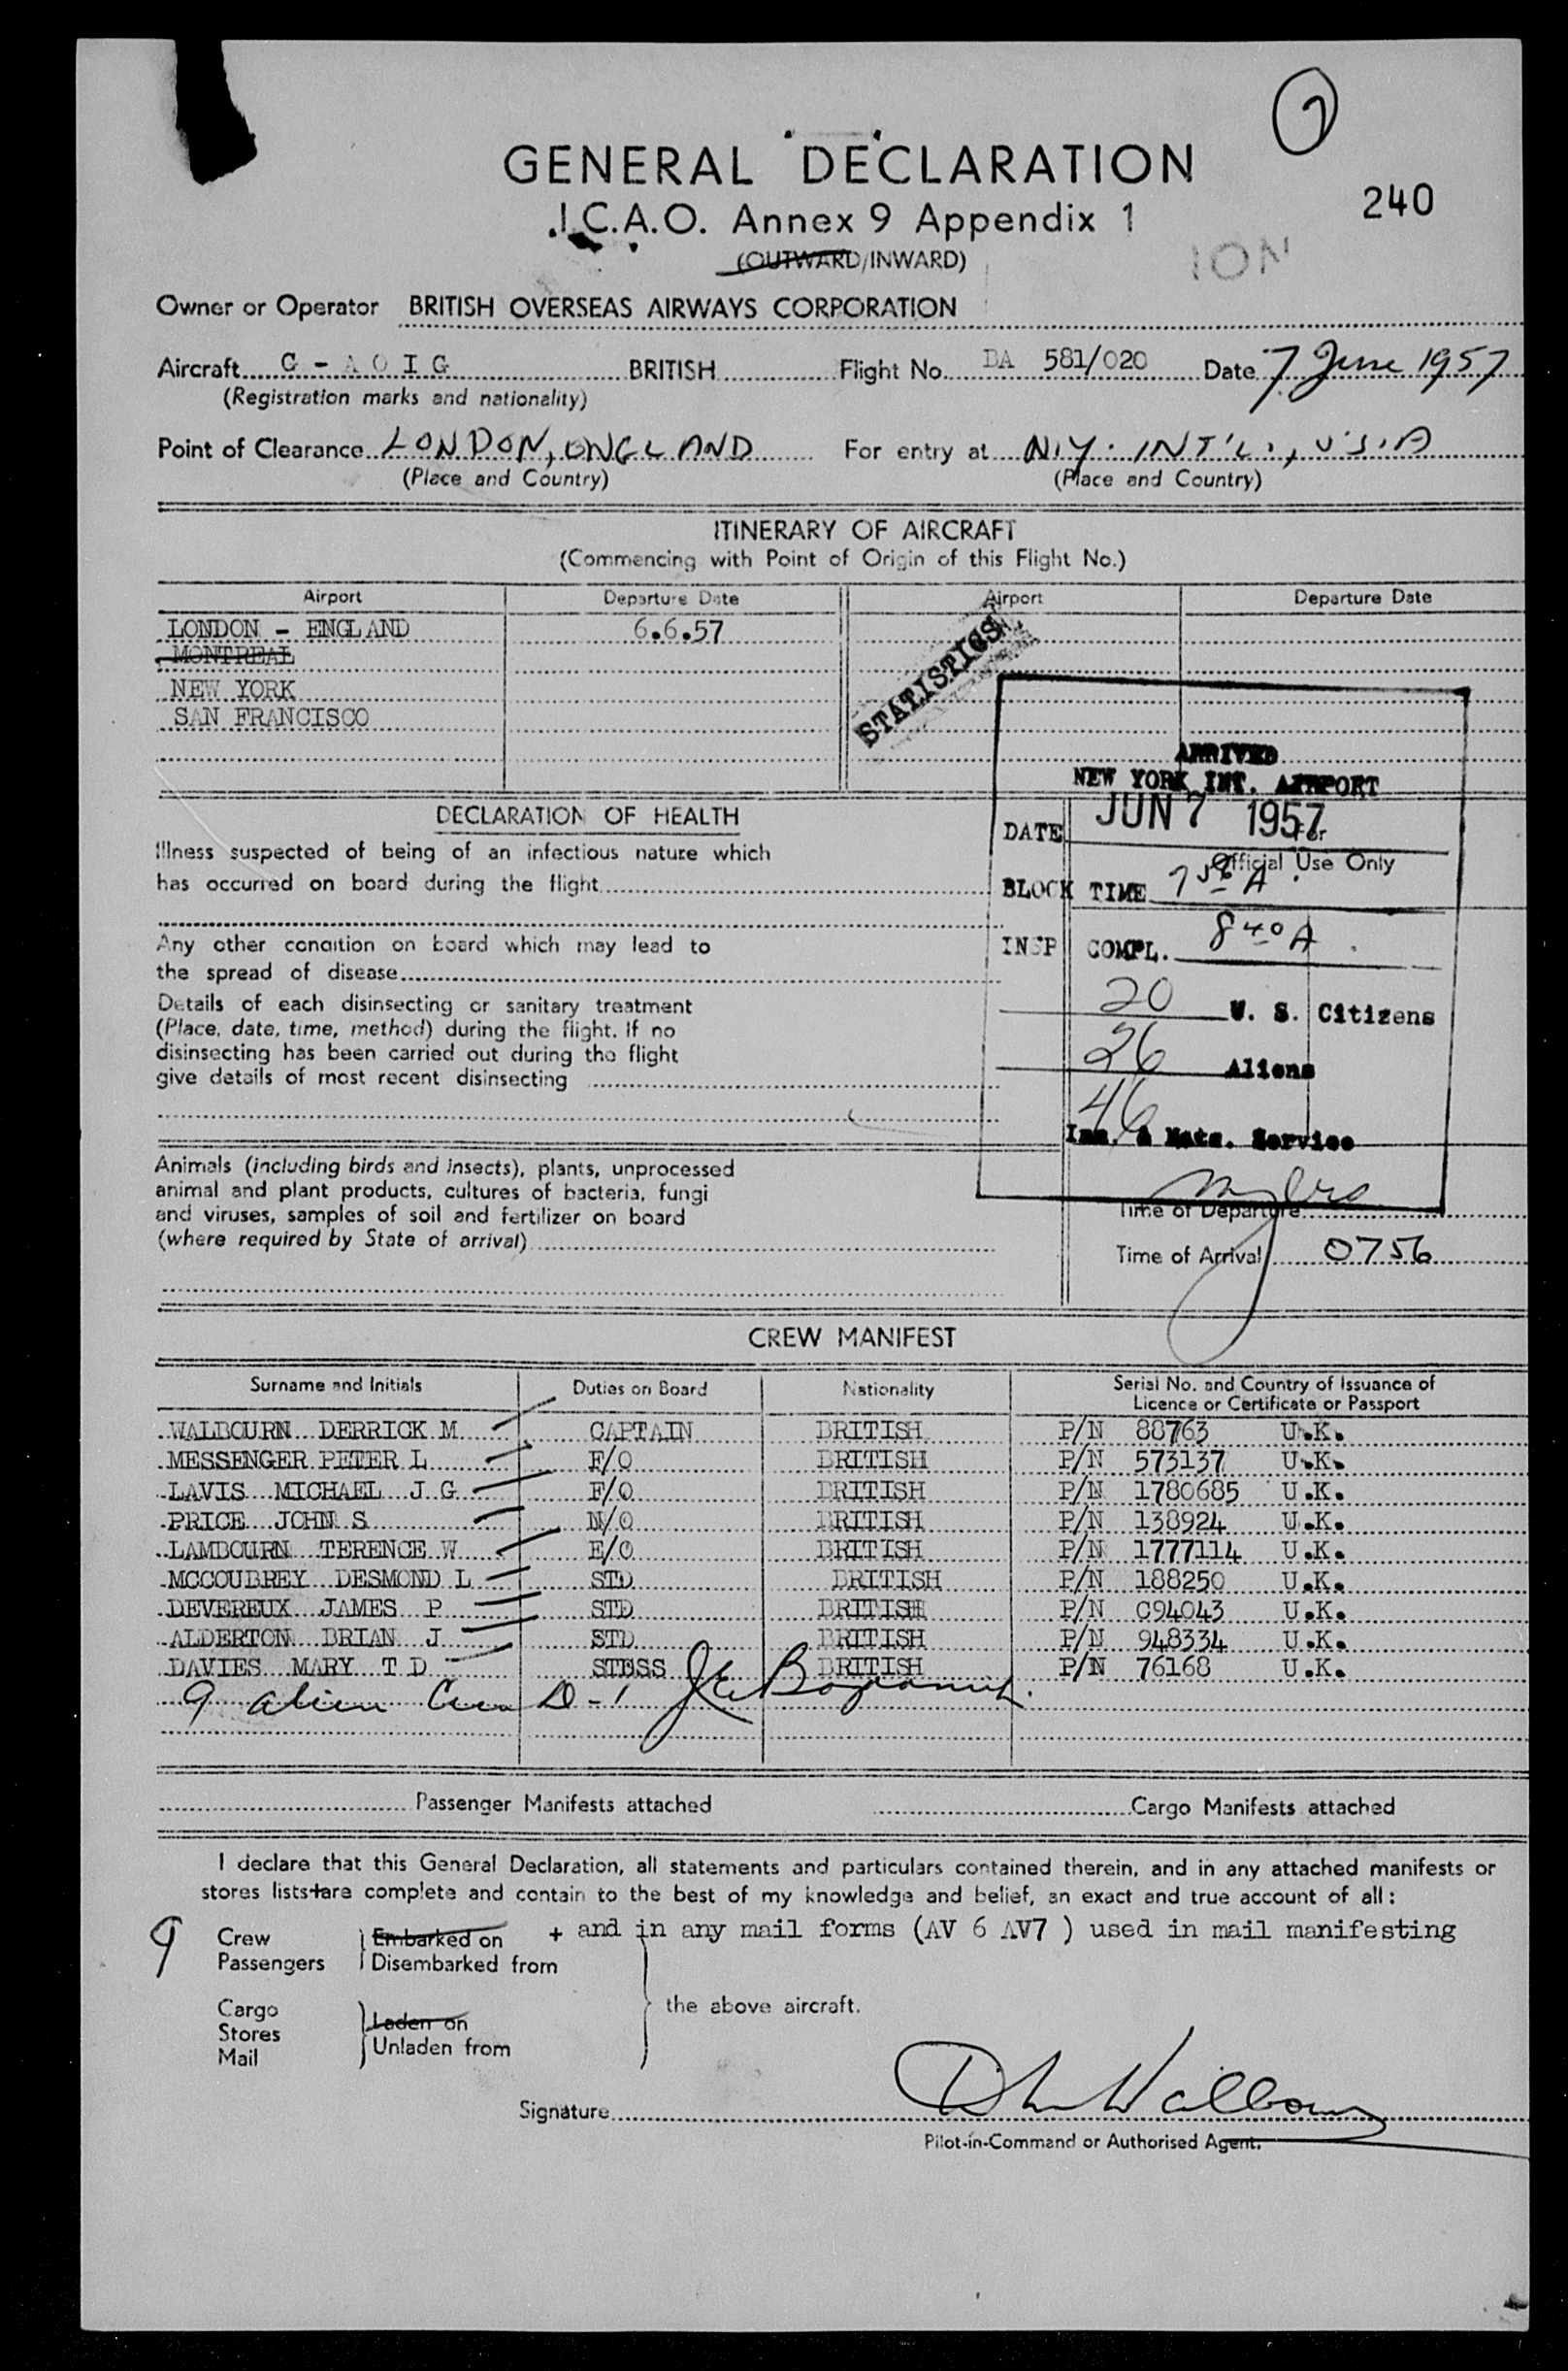 7
GENERAL DECLARATION
240
I.C.A.O. Annex 9 Appendix 1
(OUTWARD/INWARD)
ION
Owner or Operator BRITISH OVERSEAS AIRWAYS CORPORATION
Aircraft G - A O I G BRITISH Flight No. BA 581/020 Date 7 June 1957
(Registration marks and nationality)
Point of Clearance LONDON, ENGLAND For entry at N.Y. INT'L., U.S.A
(Place and Country) (Place and Country)
ITINERARY OF AIRCRAFT
(Commencing with Point of Origin of this Flight No.)
Airport Departure Date Airport Departure Date
LONDON - ENGLAND 6.6.57
MONTREAL
NEW YORK
SAN FRANCISCO
STATISTICS
ARRIVED
NEW YORK INT. AIRPORT
DATE JUN 7 1957
For
Official Use Only
BLOCK TIME 7 56 A.
INSP COMPL. 8 40 A.
20 U. S. Citizens
26 Aliens
46
Imm. & Natz. Service
DECLARATION OF HEALTH
Illness suspected of being of an infectious nature which
has occurred on board during the flight
Any other condition on board which may lead to
the spread of disease
Details of each disinsecting or sanitary treatment
(Place, date, time, method) during the flight. If no
disinsecting has been carried out during the flight
give details of most recent disinsecting
Animals (including birds and insects), plants, unprocessed
animal and plant products, cultures of bacteria, fungi
and viruses, samples of soil and fertilizer on board
(where required by State of arrival)
Time of Departure
Time of Arrival 0756
CREW MANIFEST
Surname and Initials Duties on Board Nationality Serial No. and Country of Issuance of
Licence or Certificate or Passport
WALBOURN DERRICK M CAPTAIN BRITISH P/N 88763 U.K.
MESSENGER PETER L F/O BRITISH P/N 573137 U.K.
LAVIS MICHAEL J G F/O BRITISH P/N 1780685 U.K.
PRICE JOHN S N/O BRITISH P/N 138924 U.K.
LAMBOURN TERENCE W E/O BRITISH P/N 1777114 U.K.
MCCOUBREY DESMOND L STD BRITISH P/N 188250 U.K.
DEVEREUX JAMES P STD BRITISH P/N C94043 U.K.
ALDERTON BRIAN J STD BRITISH P/N 948334 U.K.
DAVIES MARY T D STESS BRITISH P/N 76168 U.K.
9 alien Crew D-1
Passenger Manifests attached Cargo Manifests attached
I declare that this General Declaration, all statements and particulars contained therein, and in any attached manifests or
stores lists+are complete and contain to the best of my knowledge and belief, an exact and true account of all:
9 Crew Embarked on + and in any mail forms (AV 6 AV7 ) used in mail manifesting
Passengers Disembarked from
the above aircraft.
Cargo Laden on
Stores
Mail Unladen from
Signature D M Walbourn
Pilot-in-Command or Authorised Agent.